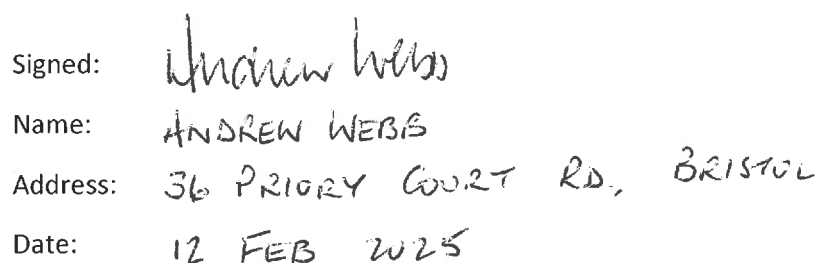 Signed: Andrew Webb
Name: ANDREW WEBB
Address: 36 PRIORY COURT RD, BRISTOL
Date: 12 FEB 2025